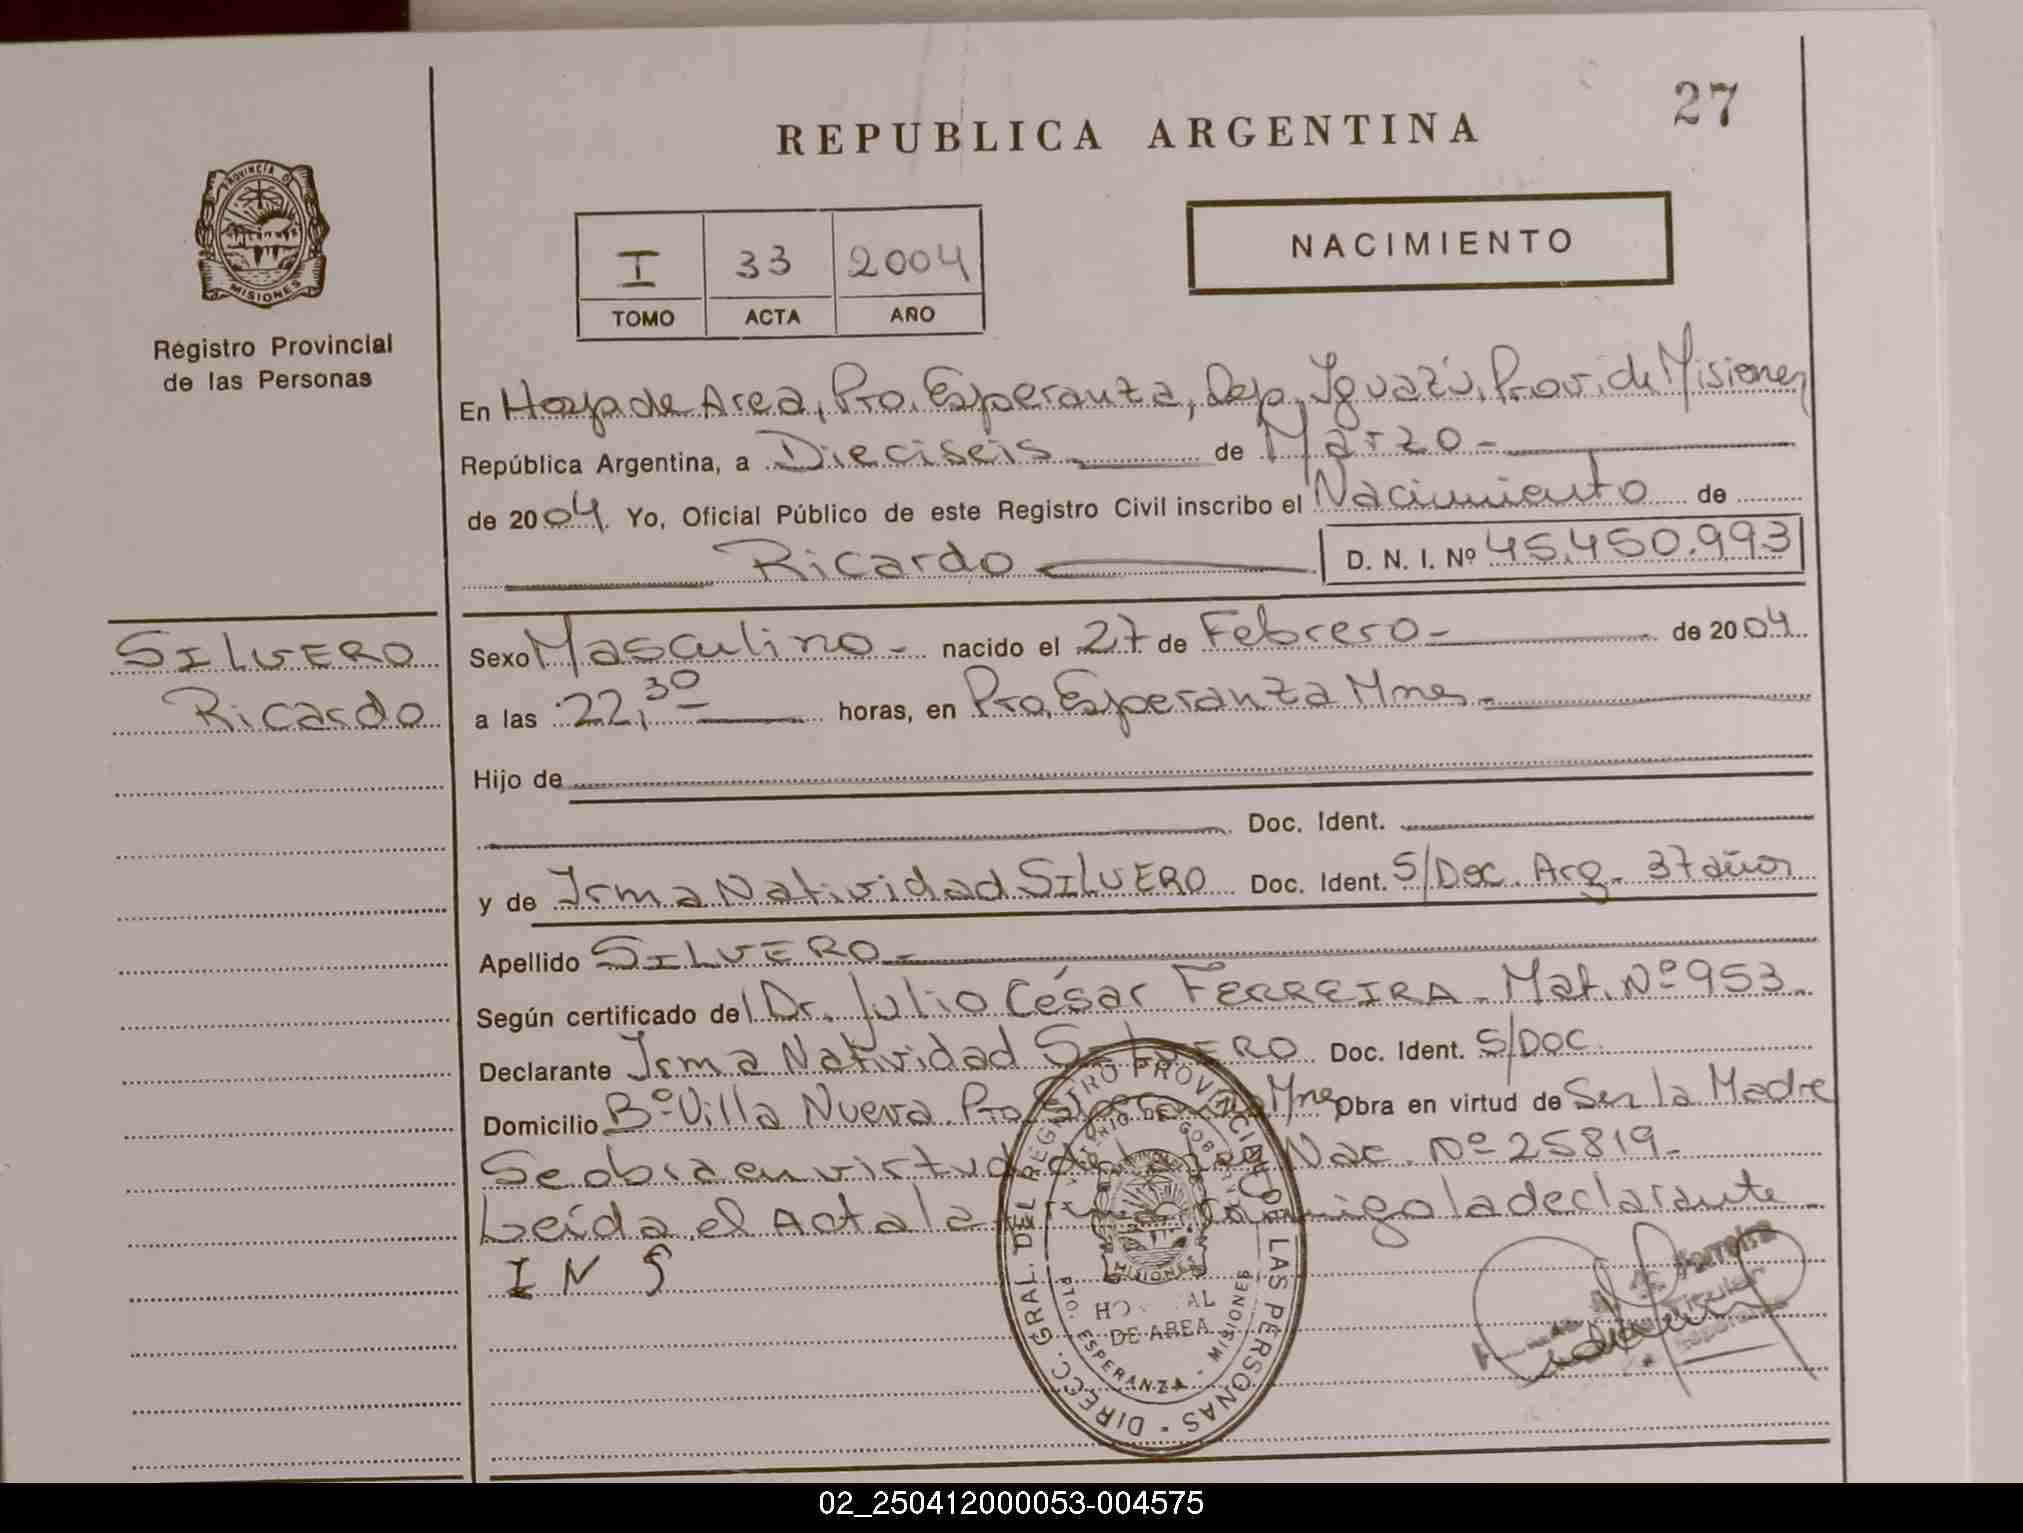 27
REPUBLICA ARGENTINA
NACIMIENTO
PROVINCIA D
MISIONES
Registro Provincial
de las Personas
I 33 2004
TOMO ACTA AÑO
En Hosp de Area, Pto. Esperanza, Dep. Iguazú, Prov. de Misiones
República Argentina, a Dieciseis de Marzo
de 2004. Yo, Oficial Público de este Registro Civil inscribo el Nacimiento de
Ricardo D. N. I. Nº 45.450.993
SILVERO
Ricardo
Sexo Masculino - nacido el 27 de Febrero - de 2004
a las 22,30 horas, en Pto. Esperanza Mnes.
Hijo de
Doc. Ident.
y de Irma Natividad SILVERO Doc. Ident. S/Doc. Arg. 37 años
Apellido SILVERO
Según certificado del Dr. Julio César FERREIRA - Mat. Nº 953
Declarante Irma Natividad SILVERO Doc. Ident. S/DOC
Domicilio Bº Villa Nueva. Pto. Esperanza Mnes Obra en virtud de Ser la Madre
Se obra en virtud de Nac. Nº 25819-
Leída el Acta la firma conmigo la declarante
I N S
DIRECC. GRAL. DEL REGISTRO PROVINCIAL DE LAS PERSONAS
MINISTERIO DE GOBIERNO
MISIONES
HOSPITAL
DE AREA
PTO. ESPERANZA - MISIONES
Ferreira
Titular
02_250412000053-004575